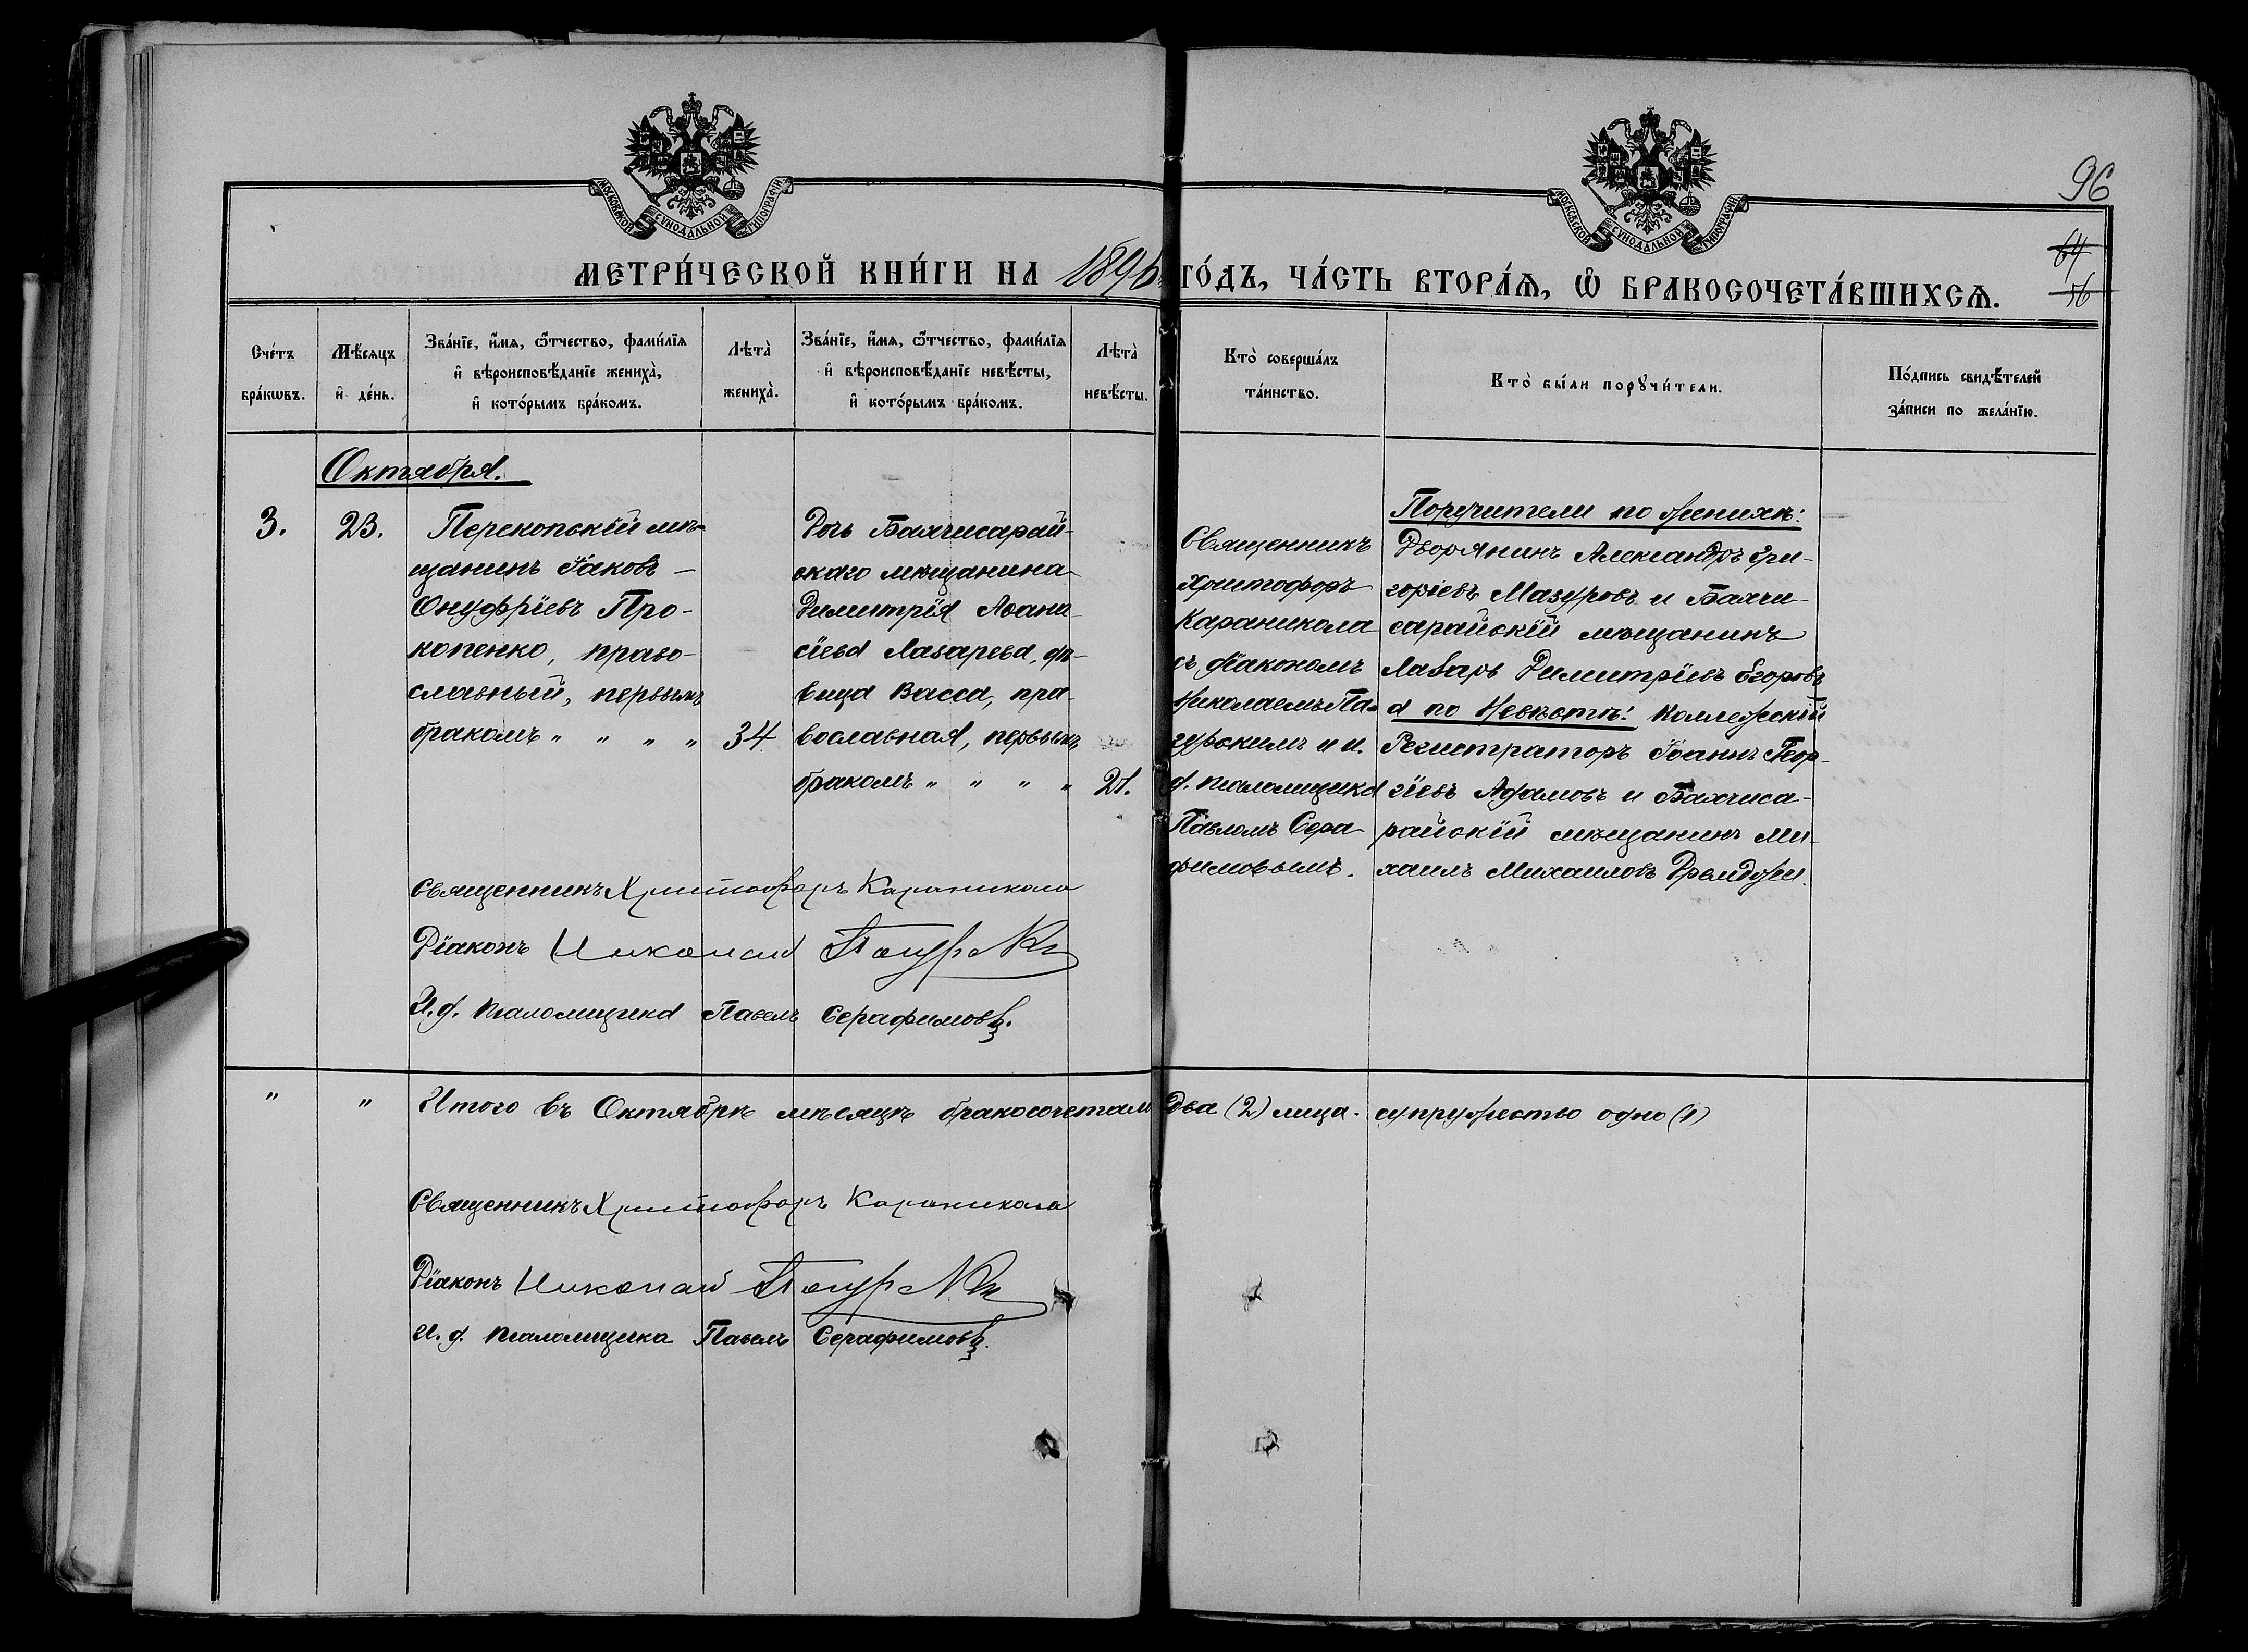 МОСКОВСКОЙ СѴНОДАЛЬНОЙ ТИПОГРАФІИ
МОСКОВСКОЙ СѴНОДАЛЬНОЙ ТИПОГРАФІИ
96
64
56
МЕТРИ́ЧЕСКОЙ КНИ́ГИ НА 1896 ГО́ДЪ, ЧА́СТЬ ВТОРА́Ѧ, Ѽ БРАКОСОЧЕТА́ВШИХСѦ.
Сче́тъ
бра́кѡвъ.
Мѣ́сяцъ
и҆ де́нь.
Зва́нїе, и҆́мя, ѻ҆́тчество, фами́лїя
и҆ вѣроисповѣ́данїе жениха̀,
и҆ кото́рымъ бра́комъ.
Лѣта̀
жениха̀.
Зва́нїе, и҆́мя, ѻ҆́тчество, фами́лїя
и҆ вѣроисповѣ́данїе невѣ́сты,
и҆ кото́рымъ бра́комъ.
Лѣта̀
невѣ́сты.
Кто̀ соверша́лъ
та́инство.
Кто̀ бы́ли порꙋчи́тели.
По́дпись свидѣ́телей
за́писи по жела́нїю.
Октября.
3.
23.
Перекопскій мѣ-
щанинъ Іаковъ
Онуфріевъ Про-
копенко, право-
славный, первымъ
бракомъ " " " "
34.
Дочь Бахчисарай-
скаго мѣщанина
Димитрія Аѳана-
сіева Лазарева, дѣ-
вица Васса, пра-
вославная, первымъ
бракомъ " " " "
21.
Священникъ
Христофоръ
Караникола
съ діакономъ
Николаемъ Па-
церскимъ и и.
д. псаломщика
Павломъ Сера-
фимовымъ.
Поручители по женихѣ:
Дворянинъ Александръ Гри-
горіевъ Мазуровъ и Бахчи-
сарайскій мѣщанинъ
Лазарь Димитріевъ Егоровъ
а по Невѣстѣ: Коллежскій
Регистраторъ Іоаннъ Геор-
гіевъ Адамовъ и Бахчиса-
райскій мѣщанинъ Ми-
хаилъ Михаиловъ
Священникъ Христофоръ Караникола
Діаконъ Николай
И. д. псаломщика Павелъ Серафимовъ.
" " Итого въ Октябрѣ мѣсяцѣ бракосочетали Два (2) лица. супружество одно (1)
Священникъ Христофоръ Караникола
Діаконъ Николай
И. д. псаломщика Павелъ Серафимовъ.